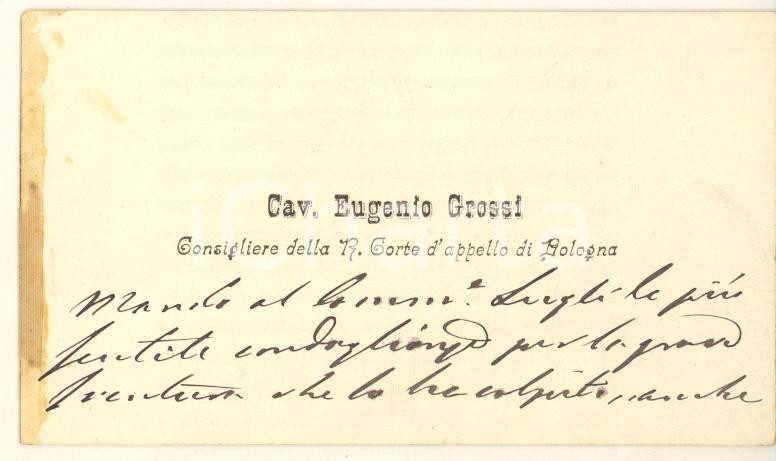 Cav. Eugenio Grossi
Consigliere della R. Corte d'appello di Bologna
Mando al Comm.e Lugli le più
sentite condoglianze per la grave
sventura che lo ha colpito, anche
iCharta